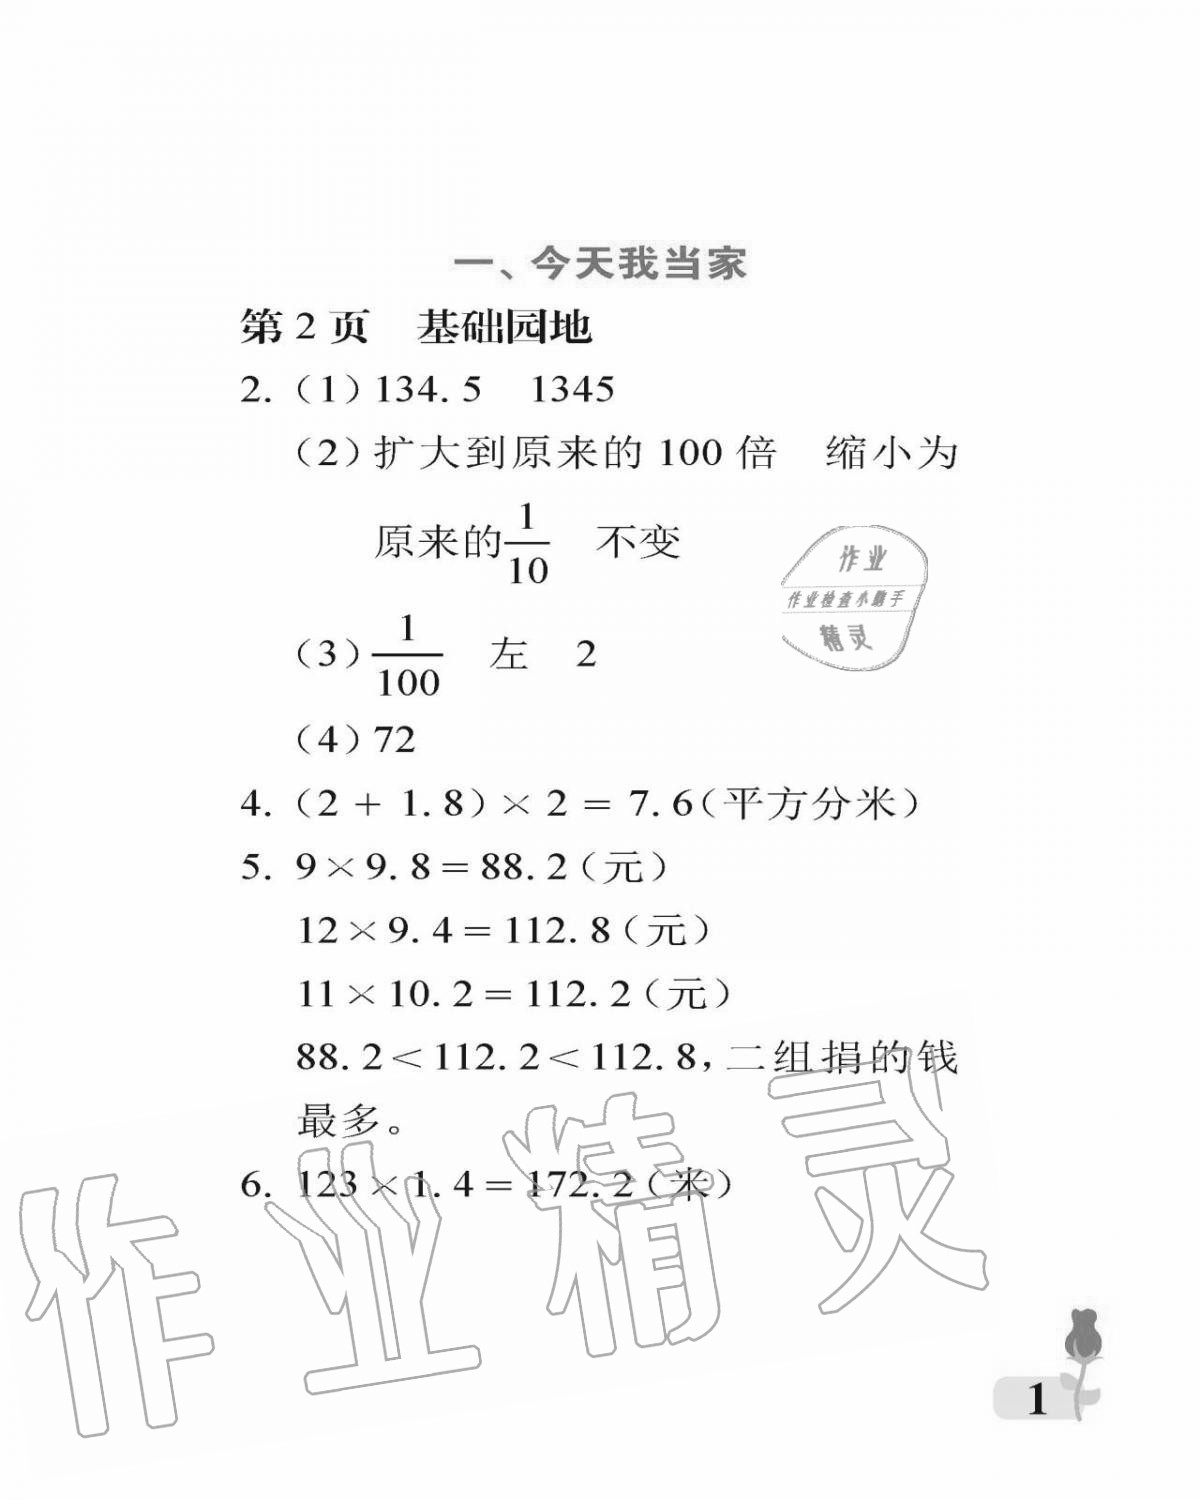 一、今天我当家
第 2 页　基础园地
2. (1) 134. 5　1345
(2) 扩大到原来的 100 倍　缩小为
原来的 1/10　不变
(3) 1/100　左　2
(4) 72
4. (2 + 1. 8) × 2 = 7. 6(平方分米)
5. 9 × 9. 8 = 88. 2(元)
12 × 9. 4 = 112. 8(元)
11 × 10. 2 = 112. 2(元)
88. 2 < 112. 2 < 112. 8, 二组捐的钱
最多。
6. 123 × 1. 4 = 172. 2(米)
作业
作业检查小助手
精灵
作业精灵
1